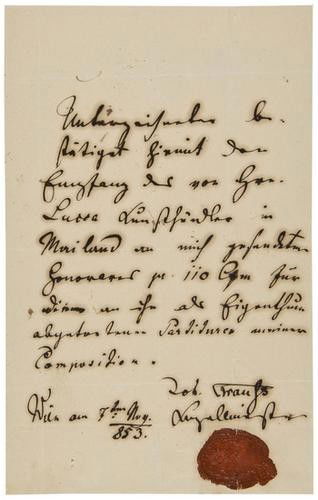 Unterzeichneter be-
stätiget hiemit den
Empfang des von Hrn.
Lucca Kunsthändler in
Mailand an mich gesendeten
Honorares pr 110 für
an ihn als Eigenthum
abgetretenen Partituren meiner
Composition.
Joh. Strauß
Wien am 7ten Nov. Kapellmeister
853.